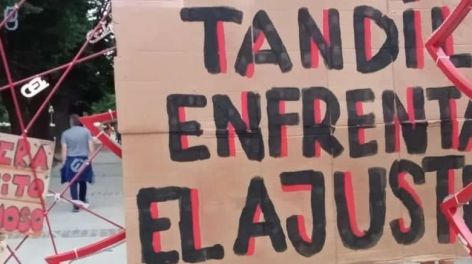 TANDIL
ENFRENTA
EL AJUST
ERA
ITO
OSO